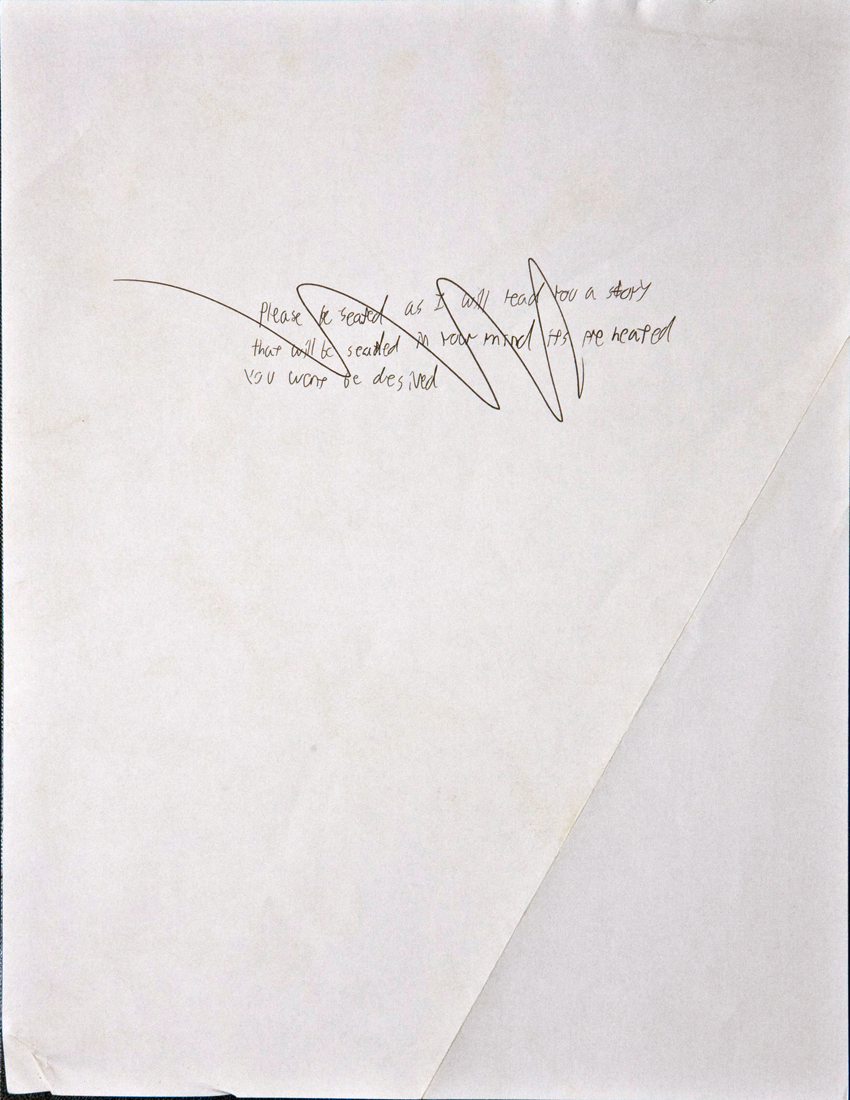 Please be seated as I will read you a story
that will be seatled in your mind its pre heated
You wont be desived